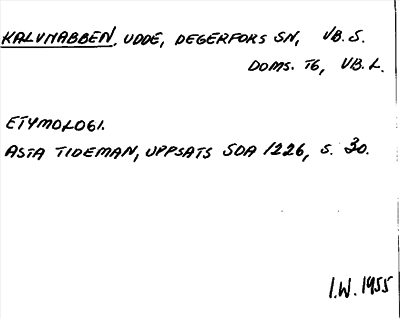 KALVNABBEN, UDDE, DEGERFORS SN, VB. S.
DOMS. T6, VB. L.
ETYMOLOGI.
ASTA TIDEMAN, UPPSATS SOA 1226, S. 30.
I.W. 1955